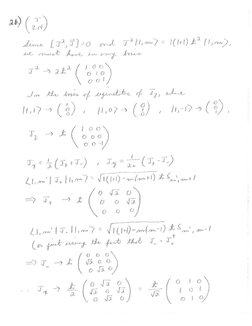 26) (J 2.14)
Since [J², J⃗] = 0 and J²|1,m> = 1(1+1)ħ²|1,m>,
we must have in any basis
J² → 2ħ² (1 0 0
0 1 0
0 0 1)
In the basis of eigenstates of J_z, where
|1,1> → (1 0 0), |1,0> → (0 1 0), |1,-1> → (0 0 1),
J_z → ħ (1 0 0
0 0 0
0 0 -1)
J_x = 1/2 (J₊ + J₋), J_y = 1/2i (J₊ - J₋)
<1,m'|J₊|1,m> = √(1(1+1) - m(m+1)) ħ δ_m',m+1
⇒ J₊ → ħ (0 √2 0
0 0 √2
0 0 0)
<1,m'|J₋|1,m> = √(1(1+1) - m(m-1)) ħ δ_m',m-1
(or just using the fact that J₋ = J₊†)
⇒ J₋ → ħ (0 0 0
√2 0 0
0 √2 0)
∴ J_x → ħ/2 (0 √2 0
√2 0 √2
0 √2 0) = ħ/√2 (0 1 0
1 0 1
0 1 0)